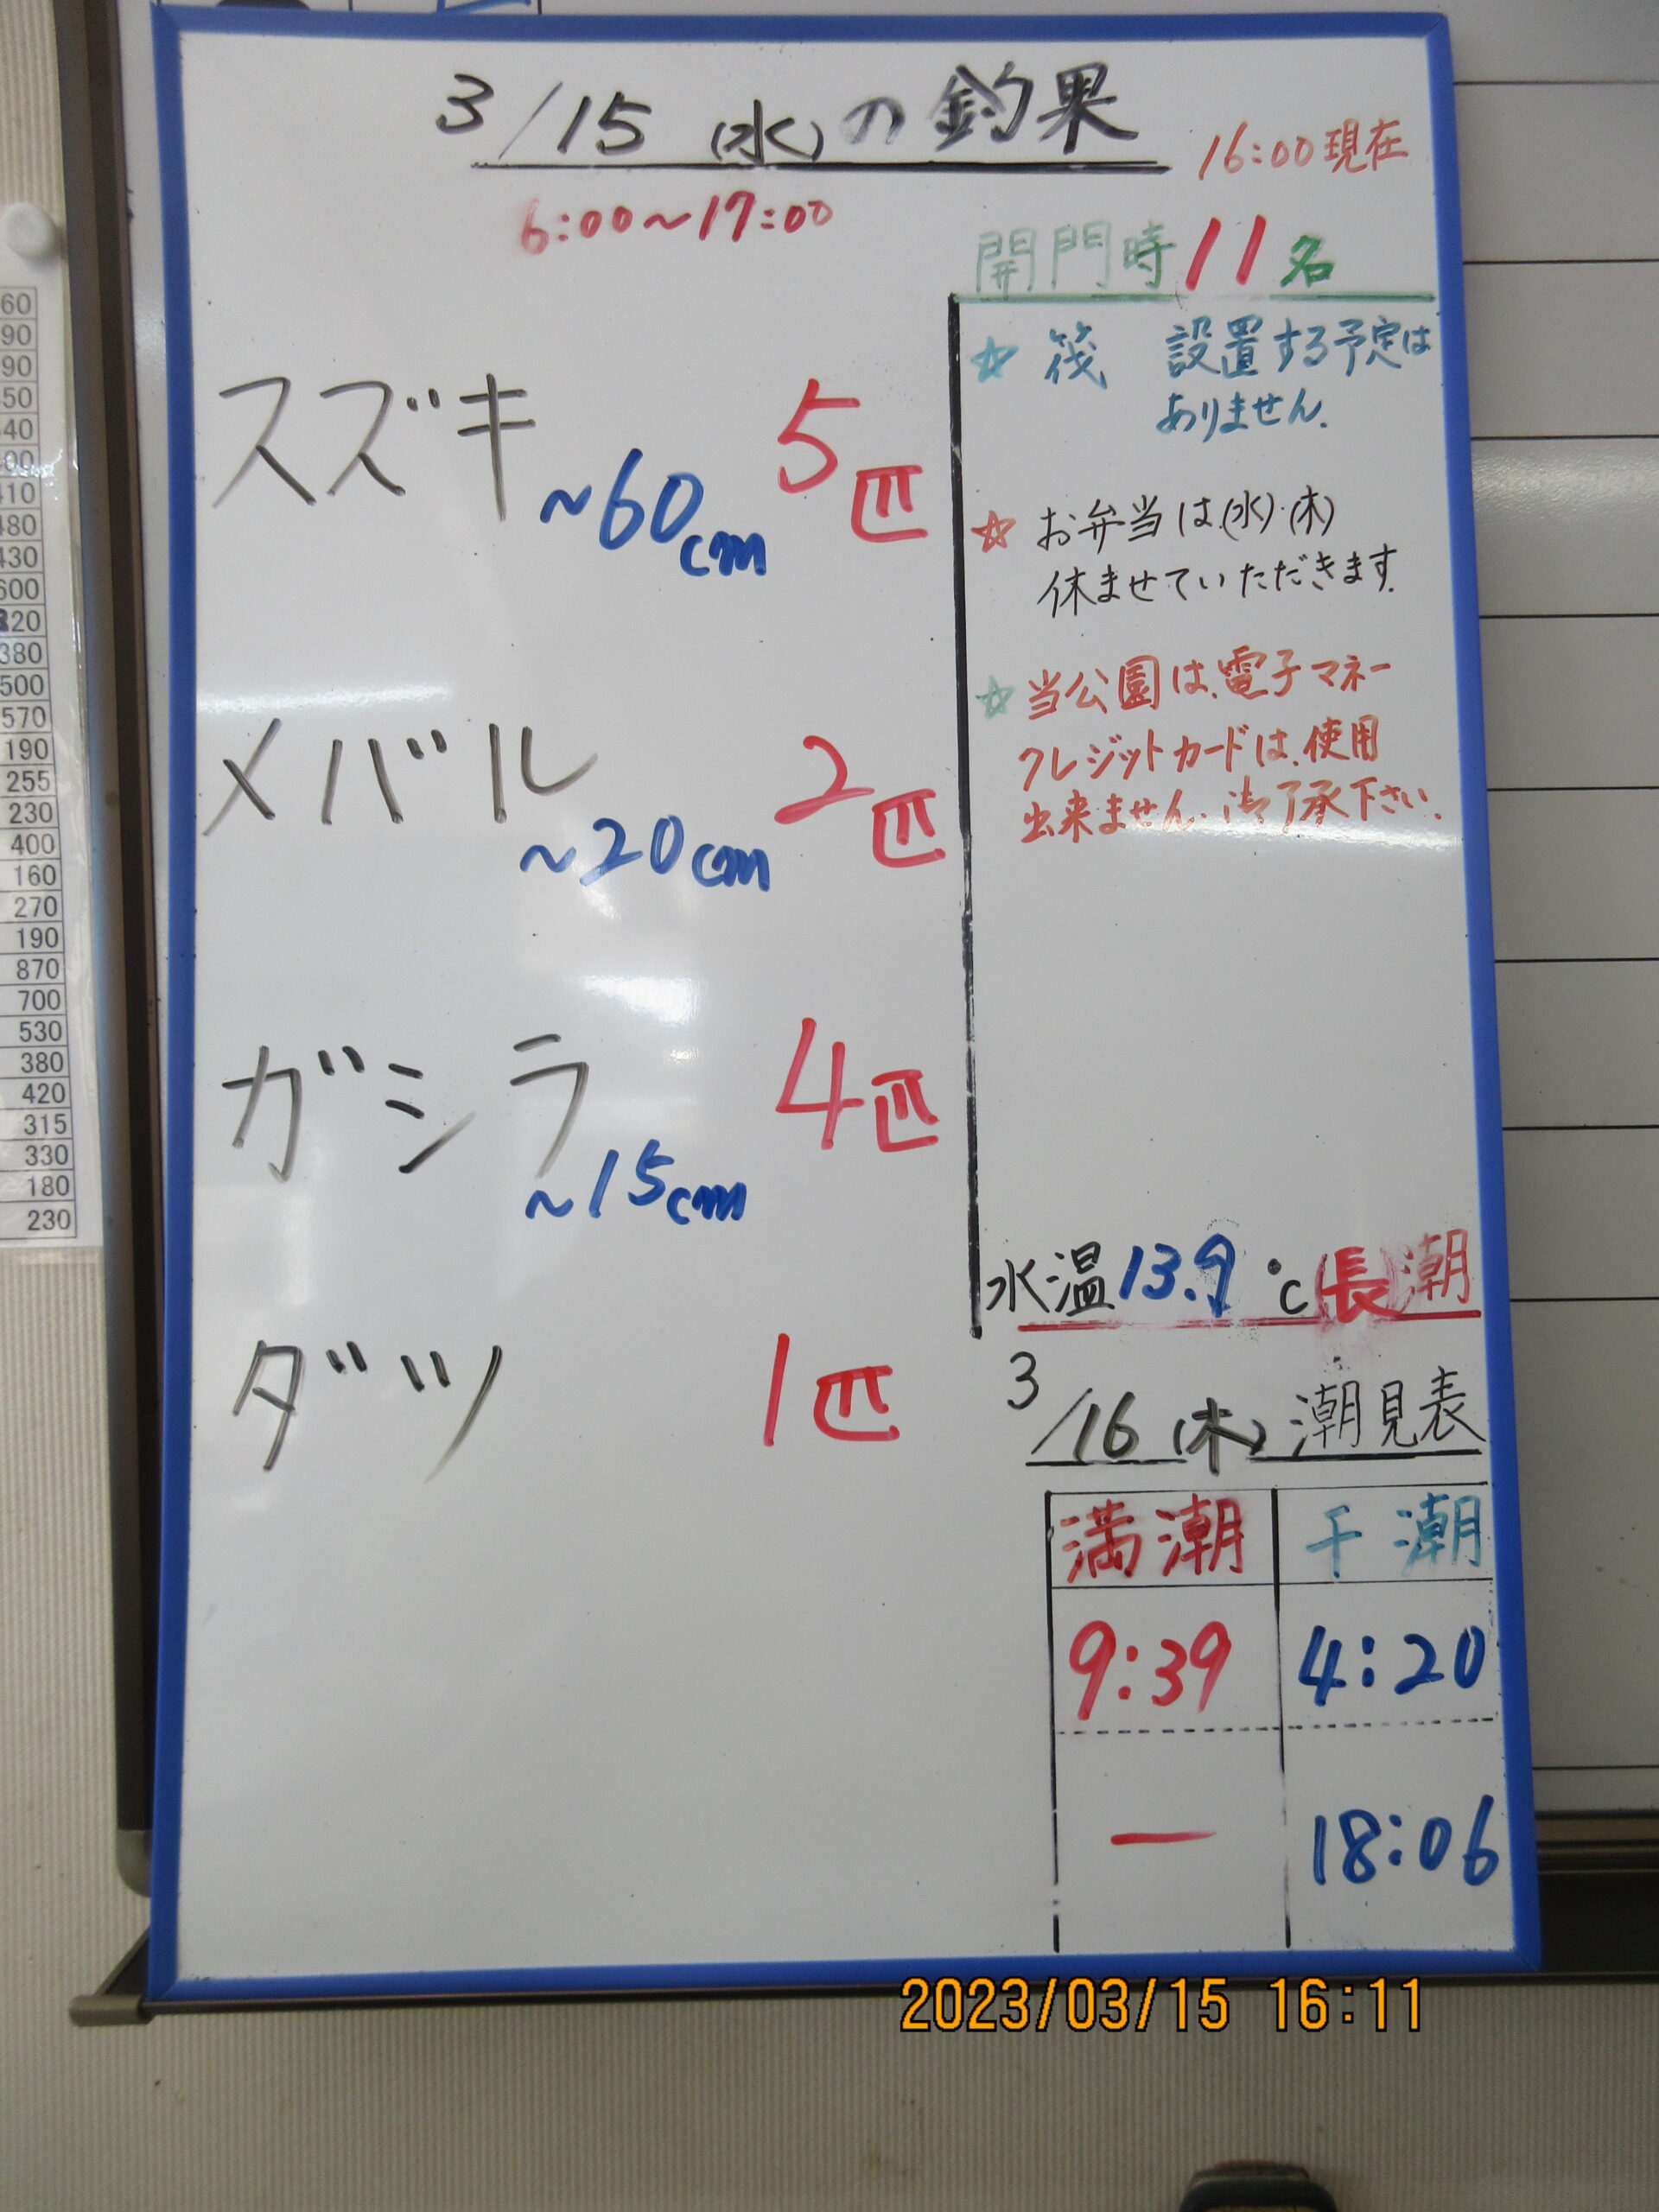 3/15(水)の釣果
16:00現在
6:00~17:00
開門時11名
スズキ ~60cm 5匹
メバル ~20cm 2匹
ガシラ ~15cm 4匹
ダツ 1匹
☆ 筏 設置する予定は
ありません.
☆ お弁当は(水)・(木)
休ませていただきます.
☆ 当公園は、電子マネー
クレジットカードは、使用
出来ません、御了承下さい.
水温13.9℃(長)潮
3/16(木)潮見表
満潮 干潮
9:39 4:20
— 18:06
2023/03/15 16:11
480
430
600
380
500
570
190
255
230
400
160
270
190
870
700
530
380
420
315
330
180
230